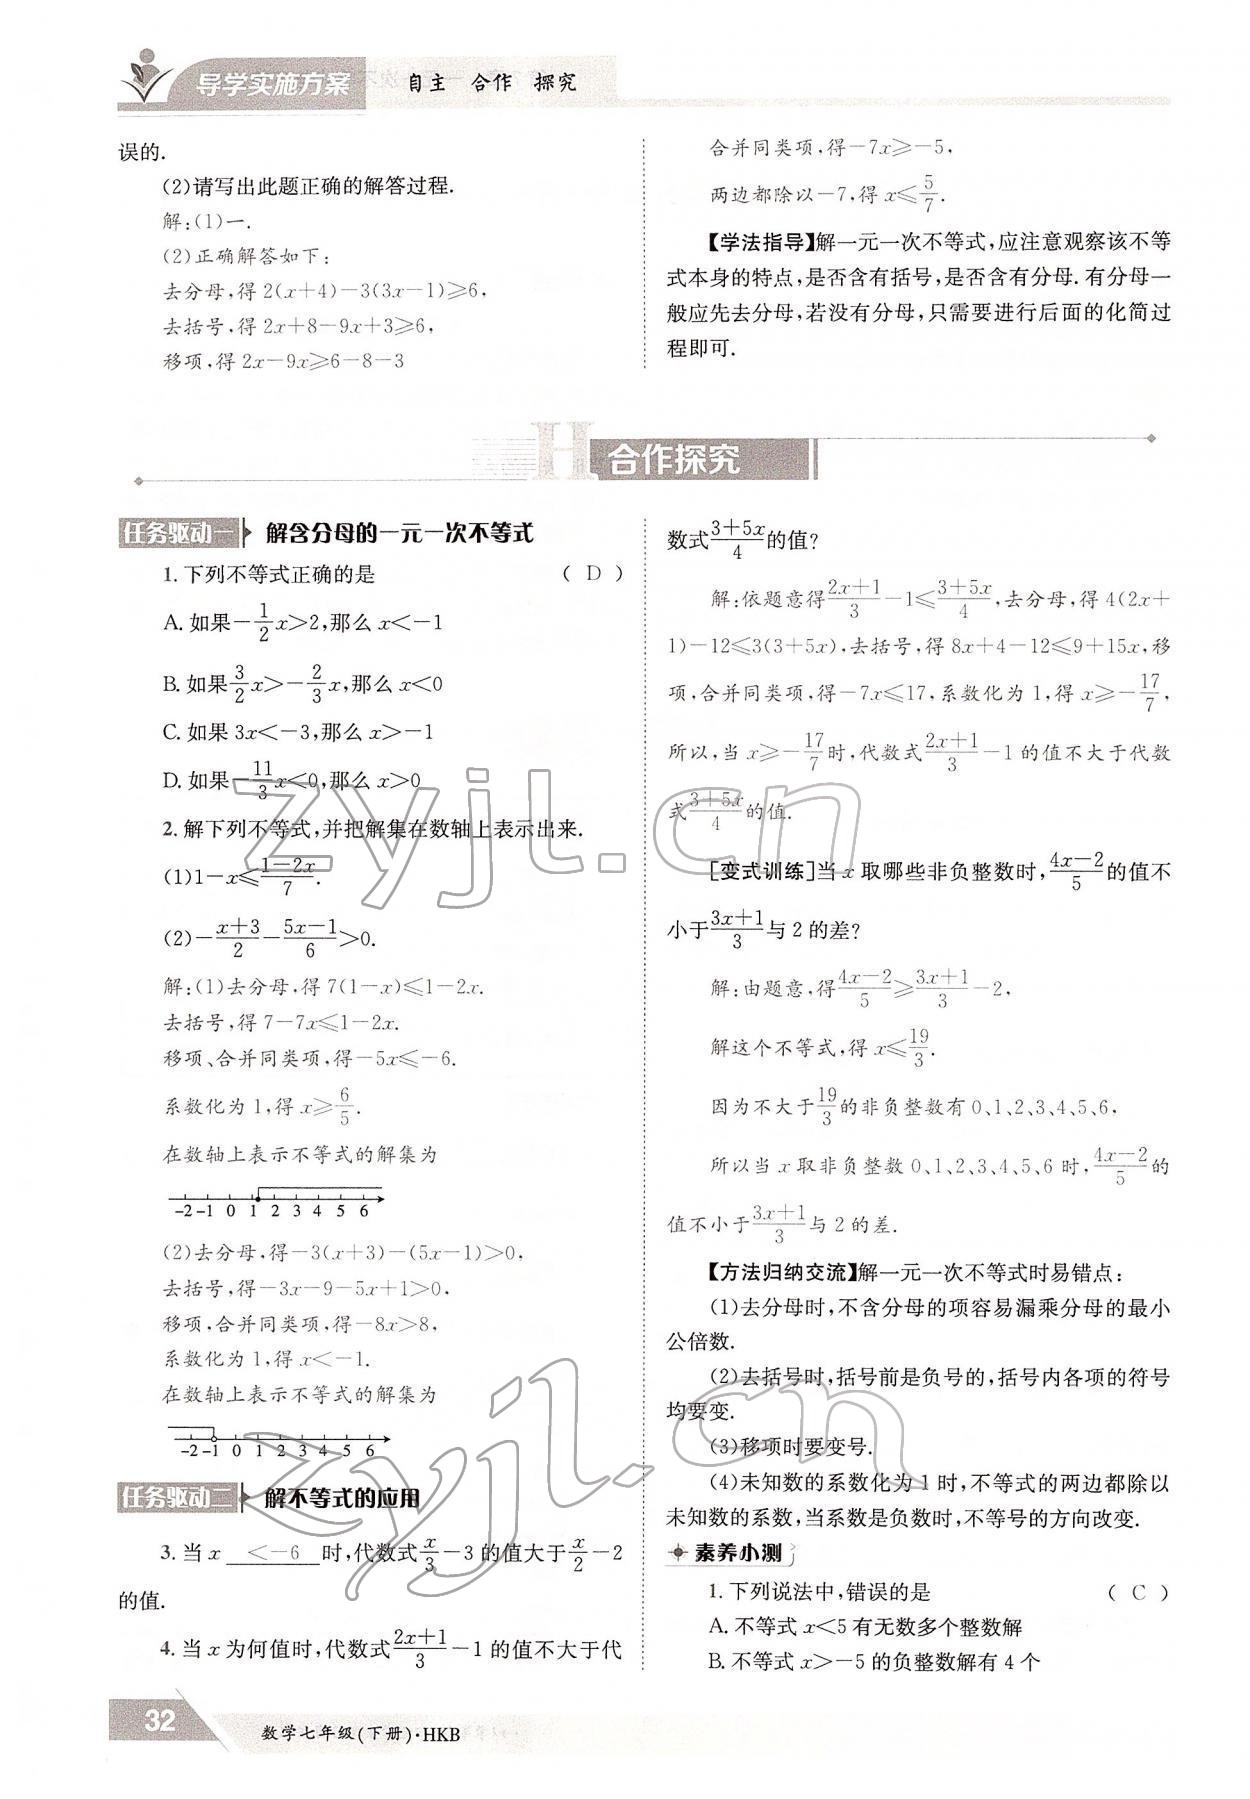 导学实施方案 自主 合作 探究
误的.
(2)请写出此题正确的解答过程.
解:(1)一.
(2)正确解答如下:
去分母,得 2(x+4)-3(3x-1)≥6,
去括号,得 2x+8-9x+3≥6,
移项,得 2x-9x≥6-8-3
合并同类项,得-7x≥-5,
两边都除以-7,得 x≤5/7.
【学法指导】解一元一次不等式,应注意观察该不等
式本身的特点,是否含有括号,是否含有分母.有分母一
般应先去分母,若没有分母,只需要进行后面的化简过
程即可.
H 合作探究
任务驱动一 解含分母的一元一次不等式
1.下列不等式正确的是 ( D )
A.如果-1/2x>2,那么 x<-1
B.如果3/2x>-2/3x,那么 x<0
C.如果 3x<-3,那么 x>-1
D.如果-11/3x<0,那么 x>0
2.解下列不等式,并把解集在数轴上表示出来.
(1)1-x≤(1-2x)/7.
(2)-(x+3)/2-(5x-1)/6>0.
解:(1)去分母,得 7(1-x)≤1-2x.
去括号,得 7-7x≤1-2x.
移项、合并同类项,得-5x≤-6.
系数化为 1,得 x≥6/5.
在数轴上表示不等式的解集为
-2 -1 0 1 2 3 4 5 6
(2)去分母,得-3(x+3)-(5x-1)>0,
去括号,得-3x-9-5x+1>0.
移项,合并同类项,得-8x>8,
系数化为 1,得 x<-1.
在数轴上表示不等式的解集为
-2 -1 0 1 2 3 4 5 6
任务驱动二 解不等式的应用
3.当 x <-6 时,代数式x/3-3 的值大于x/2-2
的值.
4.当 x 为何值时,代数式(2x+1)/3-1 的值不大于代
数式(3+5x)/4的值?
解:依题意得(2x+1)/3-1≤(3+5x)/4,去分母,得 4(2x+
1)-12≤3(3+5x),去括号,得 8x+4-12≤9+15x,移
项,合并同类项,得-7x≤17,系数化为 1,得 x≥-17/7,
所以,当 x≥-17/7时,代数式(2x+1)/3-1 的值不大于代数
式(3+5x)/4的值.
[变式训练]当 x 取哪些非负整数时,(4x-2)/5的值不
小于(3x+1)/3与 2 的差?
解:由题意,得(4x-2)/5≥(3x+1)/3-2,
解这个不等式,得 x≤19/3.
因为不大于19/3的非负整数有 0、1、2、3、4、5、6,
所以当 x 取非负整数 0、1、2、3、4、5、6 时,(4x-2)/5的
值不小于(3x+1)/3与 2 的差.
【方法归纳交流】解一元一次不等式时易错点:
(1)去分母时,不含分母的项容易漏乘分母的最小
公倍数.
(2)去括号时,括号前是负号的,括号内各项的符号
均要变.
(3)移项时要变号.
(4)未知数的系数化为 1 时,不等式的两边都除以
未知数的系数,当系数是负数时,不等号的方向改变.
素养小测
1.下列说法中,错误的是 ( C )
A.不等式 x<5 有无数多个整数解
B.不等式 x>-5 的负整数解有 4 个
32 数学七年级(下册)·HKB
zyjl.cn
zyjl.cn